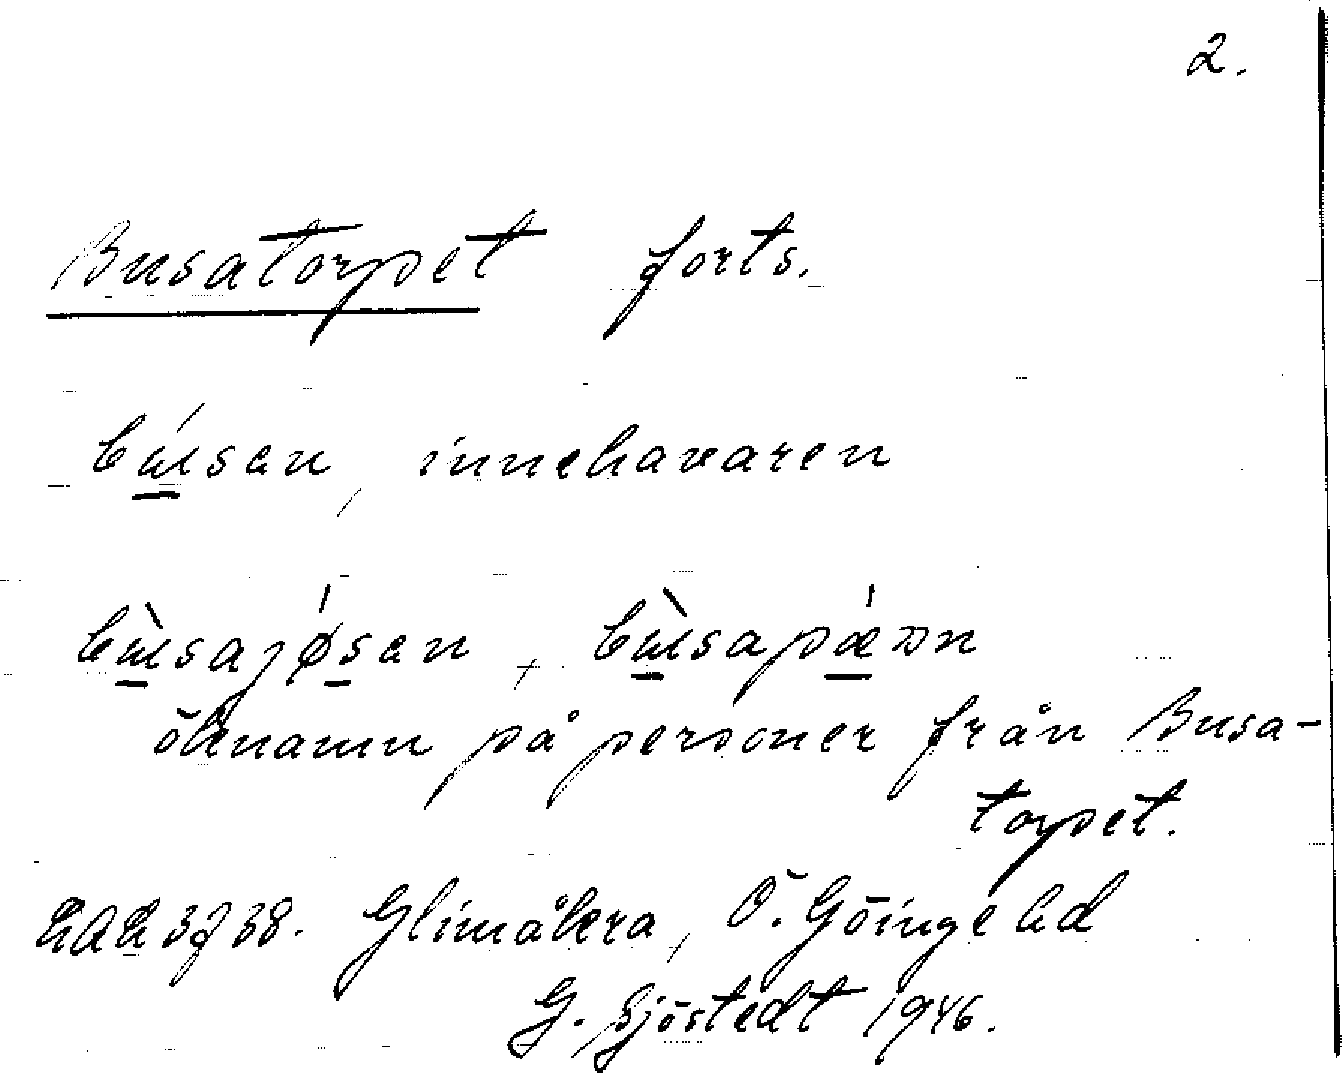 2.
Busatorpet forts.
búsen, innehavaren
bùsajǿsen, bùsapǽnn
öknamn på personer från Busa-
torpet.
Glimåkra, Ö. Göinge hd
G. Sjöstedt 1946.